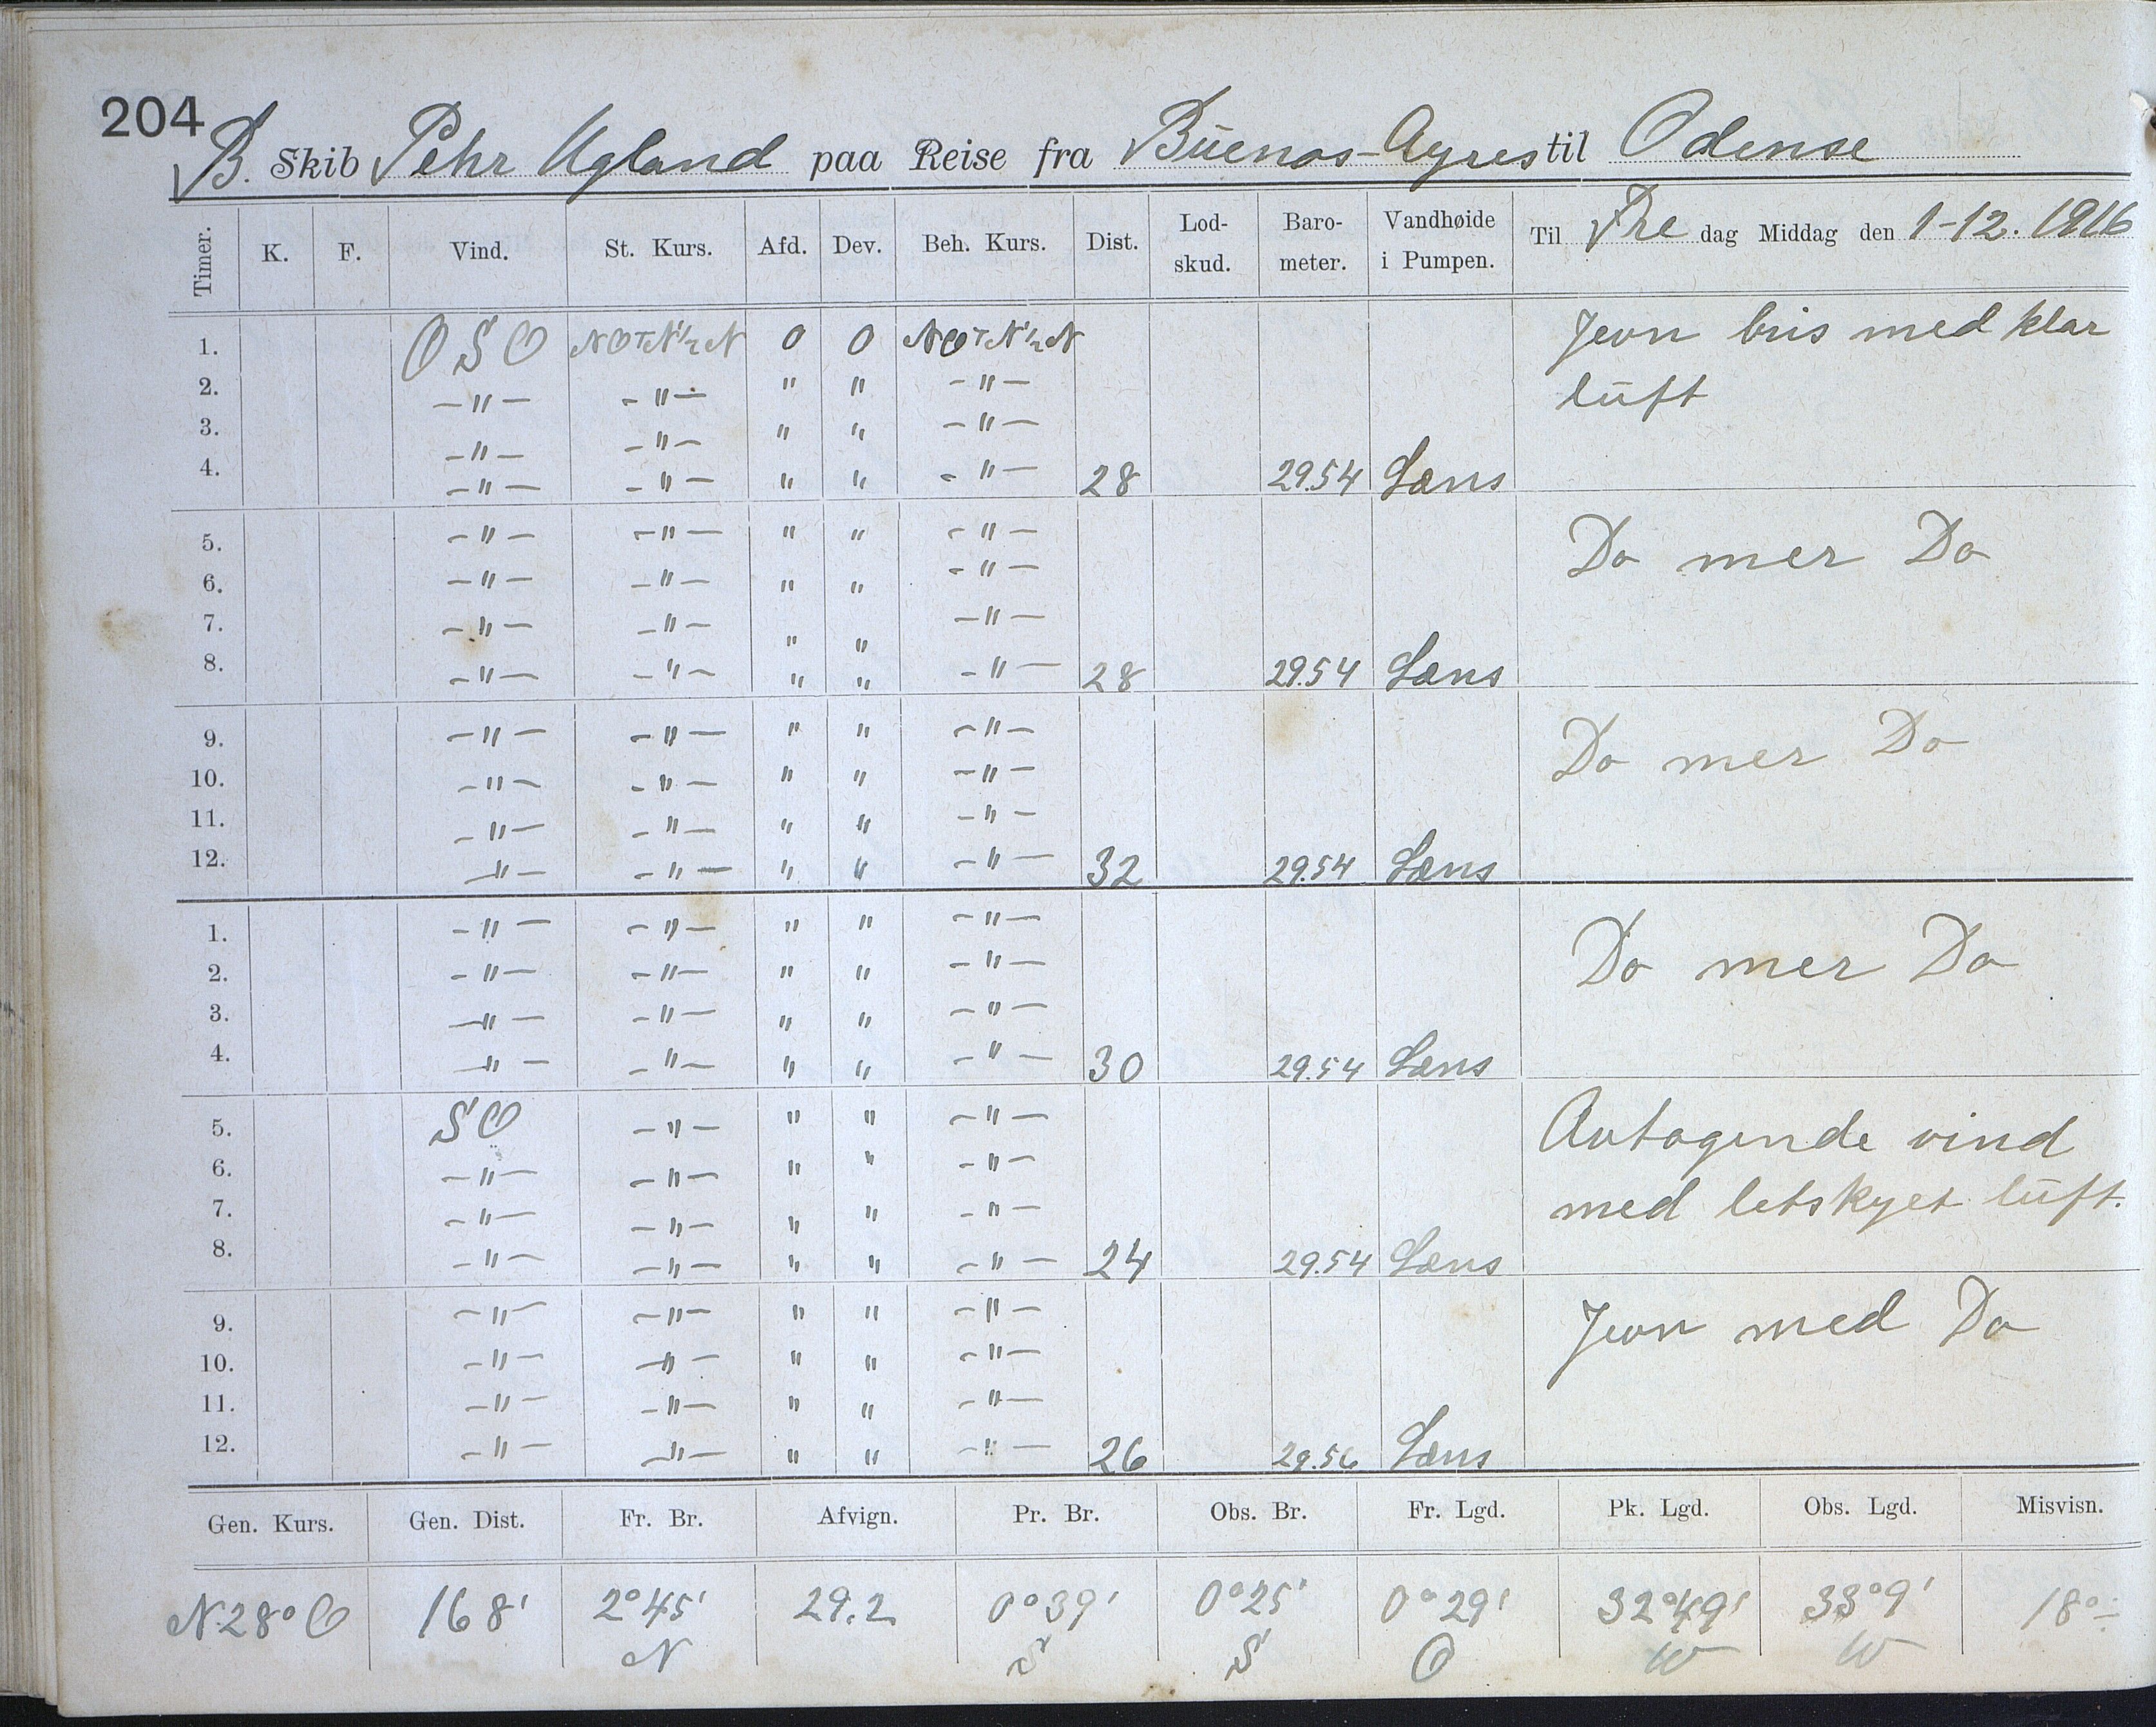 204
B. Skib Pehr Ugland paa Reise fra Buenos-Ayres til Odense
Timer. K. F. Vind. St. Kurs. Afd. Dev. Beh. Kurs. Dist. Lod-skud. Baro-meter. Vandhøide i Pumpen. Til Fre dag Middag den 1-12. 1916
1. OSO NOTN½N 0 0 NOTN½N Jevn bris med klar
2. -"- -"- " " -"- luft
3. -"- -"- " " -"-
4. -"- -"- " " -"- 28 29.54 Læns
5. -"- -"- " " -"- Do mer Do
6. -"- -"- " " -"-
7. -"- -"- " " -"-
8. -"- -"- " " -"- 28 29.54 Læns
9. -"- -"- " " -"- Do mer Do
10. -"- -"- " " -"-
11. -"- -"- " " -"-
12. -"- -"- " " -"- 32 29.54 Læns
1. -"- -"- " " -"- Do mer Do
2. -"- -"- " " -"-
3. -"- -"- " " -"-
4. -"- -"- " " -"- 30 29.54 Læns
5. SO -"- " " -"- Avtagende vind
6. -"- -"- " " -"-
7. -"- -"- " " -"- med letskyet luft.
8. -"- -"- " " -"- 24 29.54 Læns
9. -"- -"- " " -"- Jevn med Do
10. -"- -"- " " -"-
11. -"- -"- " " -"-
12. -"- -"- " " -"- 26 29.56 Læns
Gen. Kurs. Gen. Dist. Fr. Br. Afvign. Pr. Br. Obs. Br. Fr. Lgd. Pk. Lgd. Obs. Lgd. Misvisn.
N28°O 168' 2°45' 29.2 0°39' 0°25' 0°29' 32°49' 33°9' 18°÷
N S S O W W